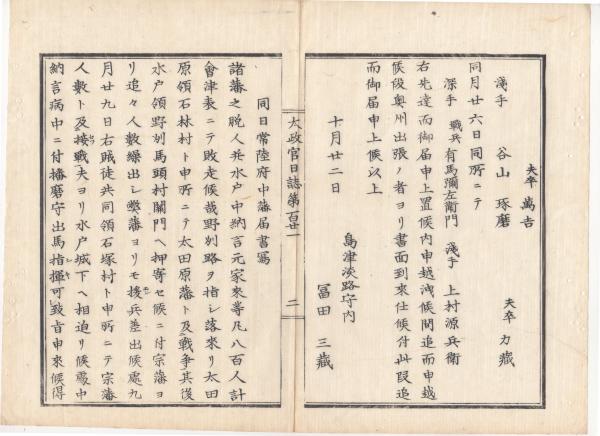 夫卒 萬吉
淺手 谷山琢磨 夫卒 力藏
同月廿六日同所ニテ
深手 戰兵 有馬彌左衞門 淺手 上村源兵衞
右先達而御届申上置候内申越洩候間追而申越
候段奥州出張ノ者ヨリ書面到來仕候付此段追
而御届申上候以上
十月廿二日
島津淡路守内
冨田三藏
太政官日誌第百廿一
二
同日常陸府中藩届書寫
諸藩之脱人并水戸中納言元家來等凡八百人計
會津表ニテ敗走候哉野州路ヲ指シ落來リ太田
原領石林村ト申所ニテ太田原藩ト及戰爭其後
水戸領野州馬頭村關門ヘ押寄セ候ニ付宗藩ヨ
リ追々人數繰出シ弊藩ヨリモ援兵差出候處九
月廿九日右賊徒共同領石塚村ト申所ニテ宗藩
人數ト及接戰夫ヨリ水戸城下ヘ相迫リ候處中
納言病中ニ付播磨守出馬指揮可致旨申來候得